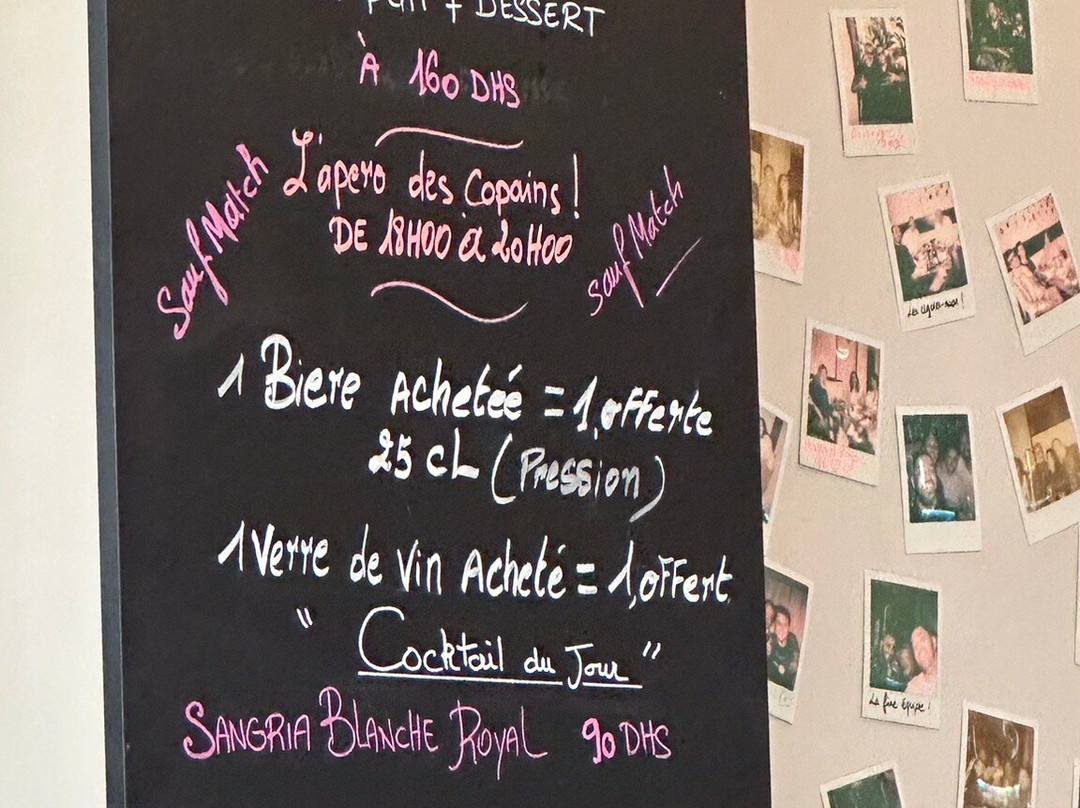 + DESSERT
À 160 DHS
L'apero des Copains!
DE 18H00 à 20H00
Sauf Match
Sauf Match
1 Biere Acheteé = 1, offerte
25 cL (Pression)
1 Verre de Vin Acheté = 1, offert
" Cocktail du Jour "
SANGRIA BLANCHE ROYAL 90 DHS
La fine équipe !